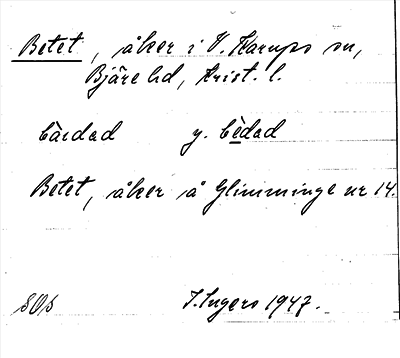 Betet, åker i V. Karups sn,
Bjäre hd, Krist. l.
bàıdad y. bèdad
Betet, åker å Glimminge nr 14.
SOb I. Ingers 1947.